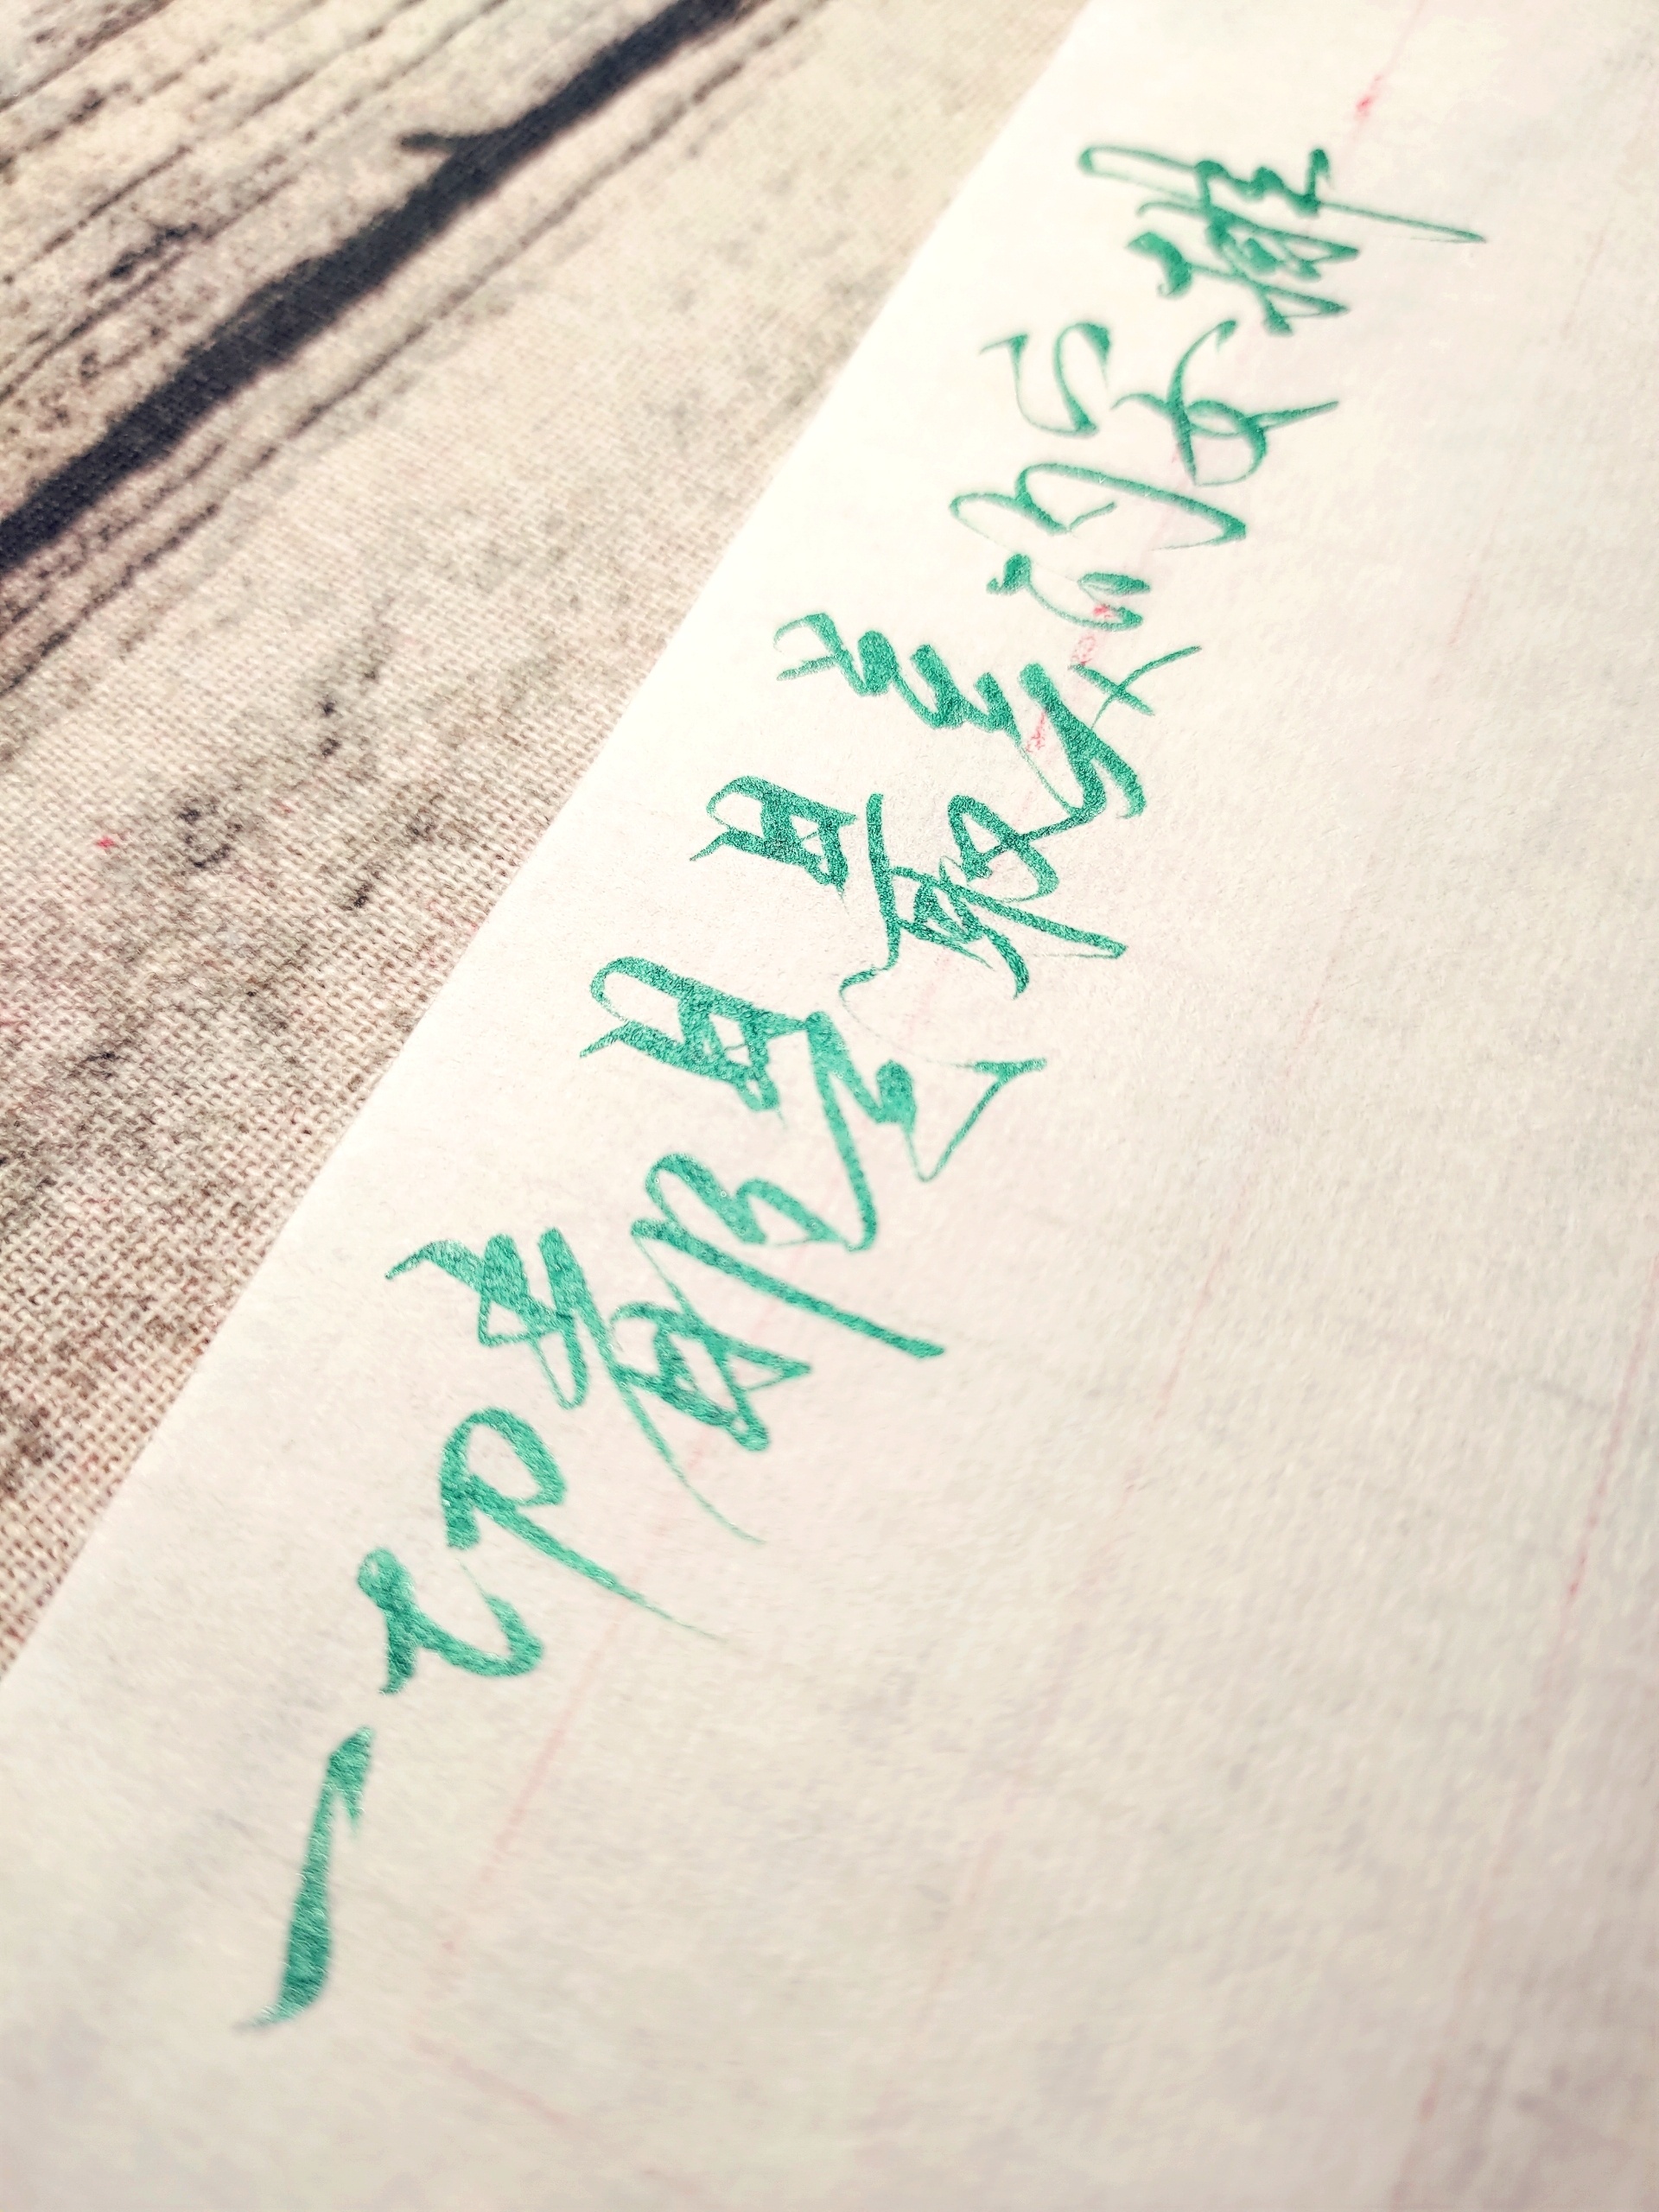 一切都是最美的安排